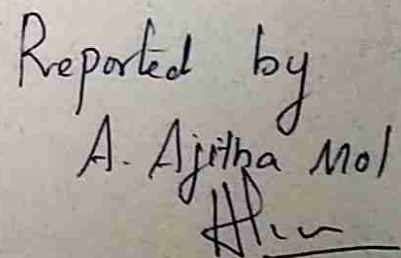 Reported by
A. Ajitha Mol